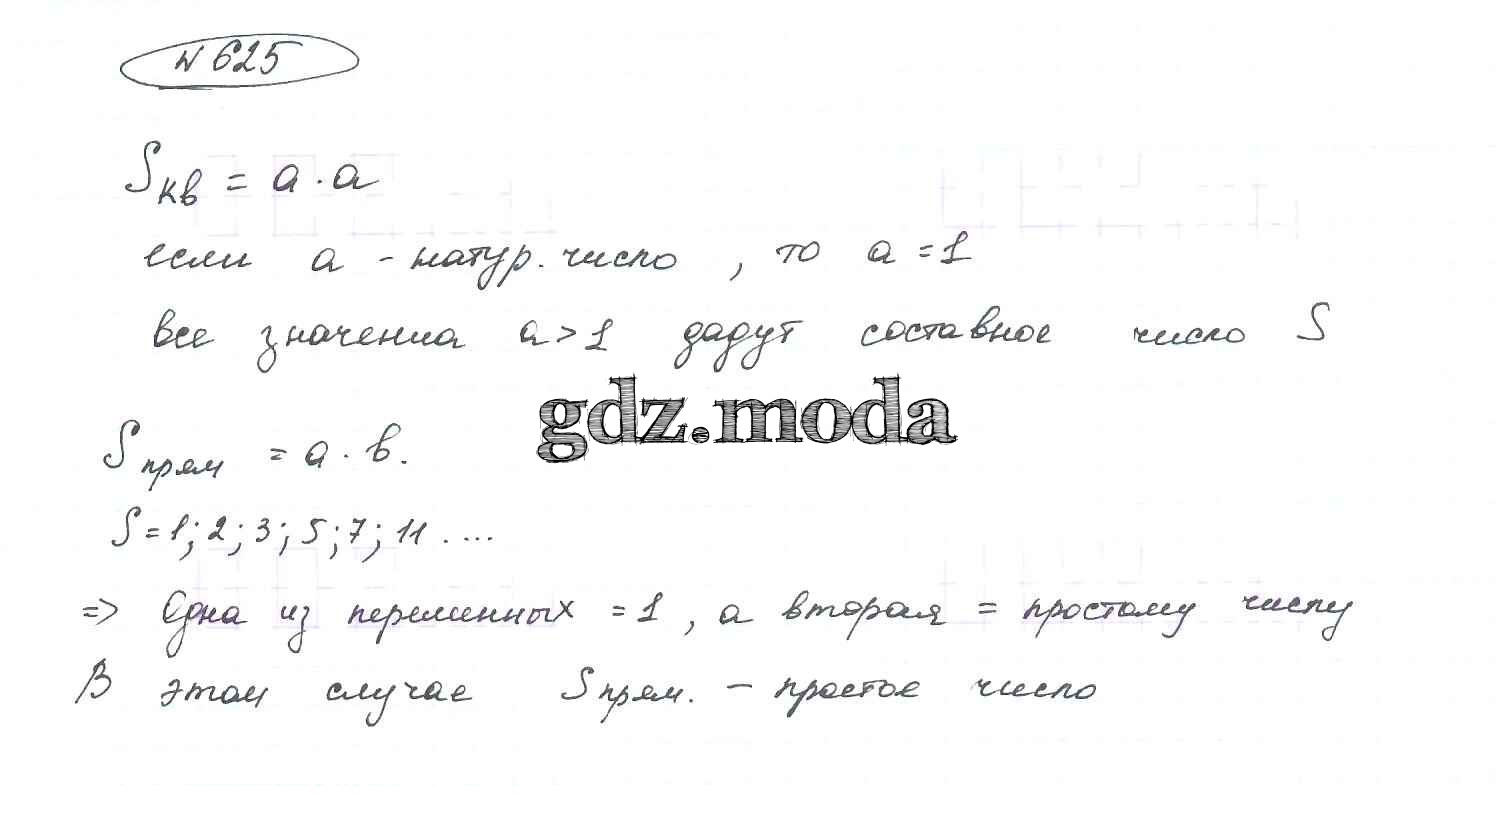 № 625
Sкв = a · a
если a - натур. число , то a = 1
все значения a > 1 дадут составное число S
gdz.moda
Sпрям = a · в.
S = 1; 2; 3; 5; 7; 11 ....
=> Одна из переменных = 1 , а вторая = простому числу
В этом случае Sпрям. - простое число